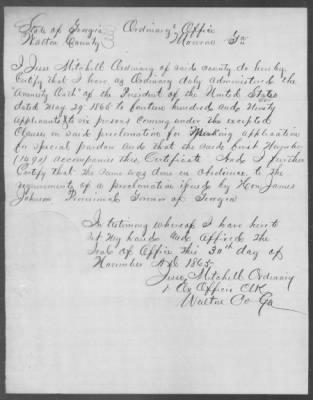 State of Georgia Ordinary's Office
Walton County Monroe Ga
I Jesse Mitchell Ordinary of said county do hereby
Certify that I have as Ordinary duly administered "the
Amnesty Oath" of the President of the United States
dated May 29th 1865 to fourteen hundred and Ninety
Applicants & to six persons coming under the excepted
Clauses in said proclamation for making application
for special pardon and that the said
(1490) accompanies this Certificate And I further
Certify that the same was done in obedience to the
requirements of a proclamation issued by Hon James
Johnson Provisional Governor of Georgia
In testimony whereof I have hereto
set my hand and affixed the
Seal of Office this 30th day of
November AD 1865
Jesse Mitchell Ordinary
& Ex Officio Clk
Walton Co Ga